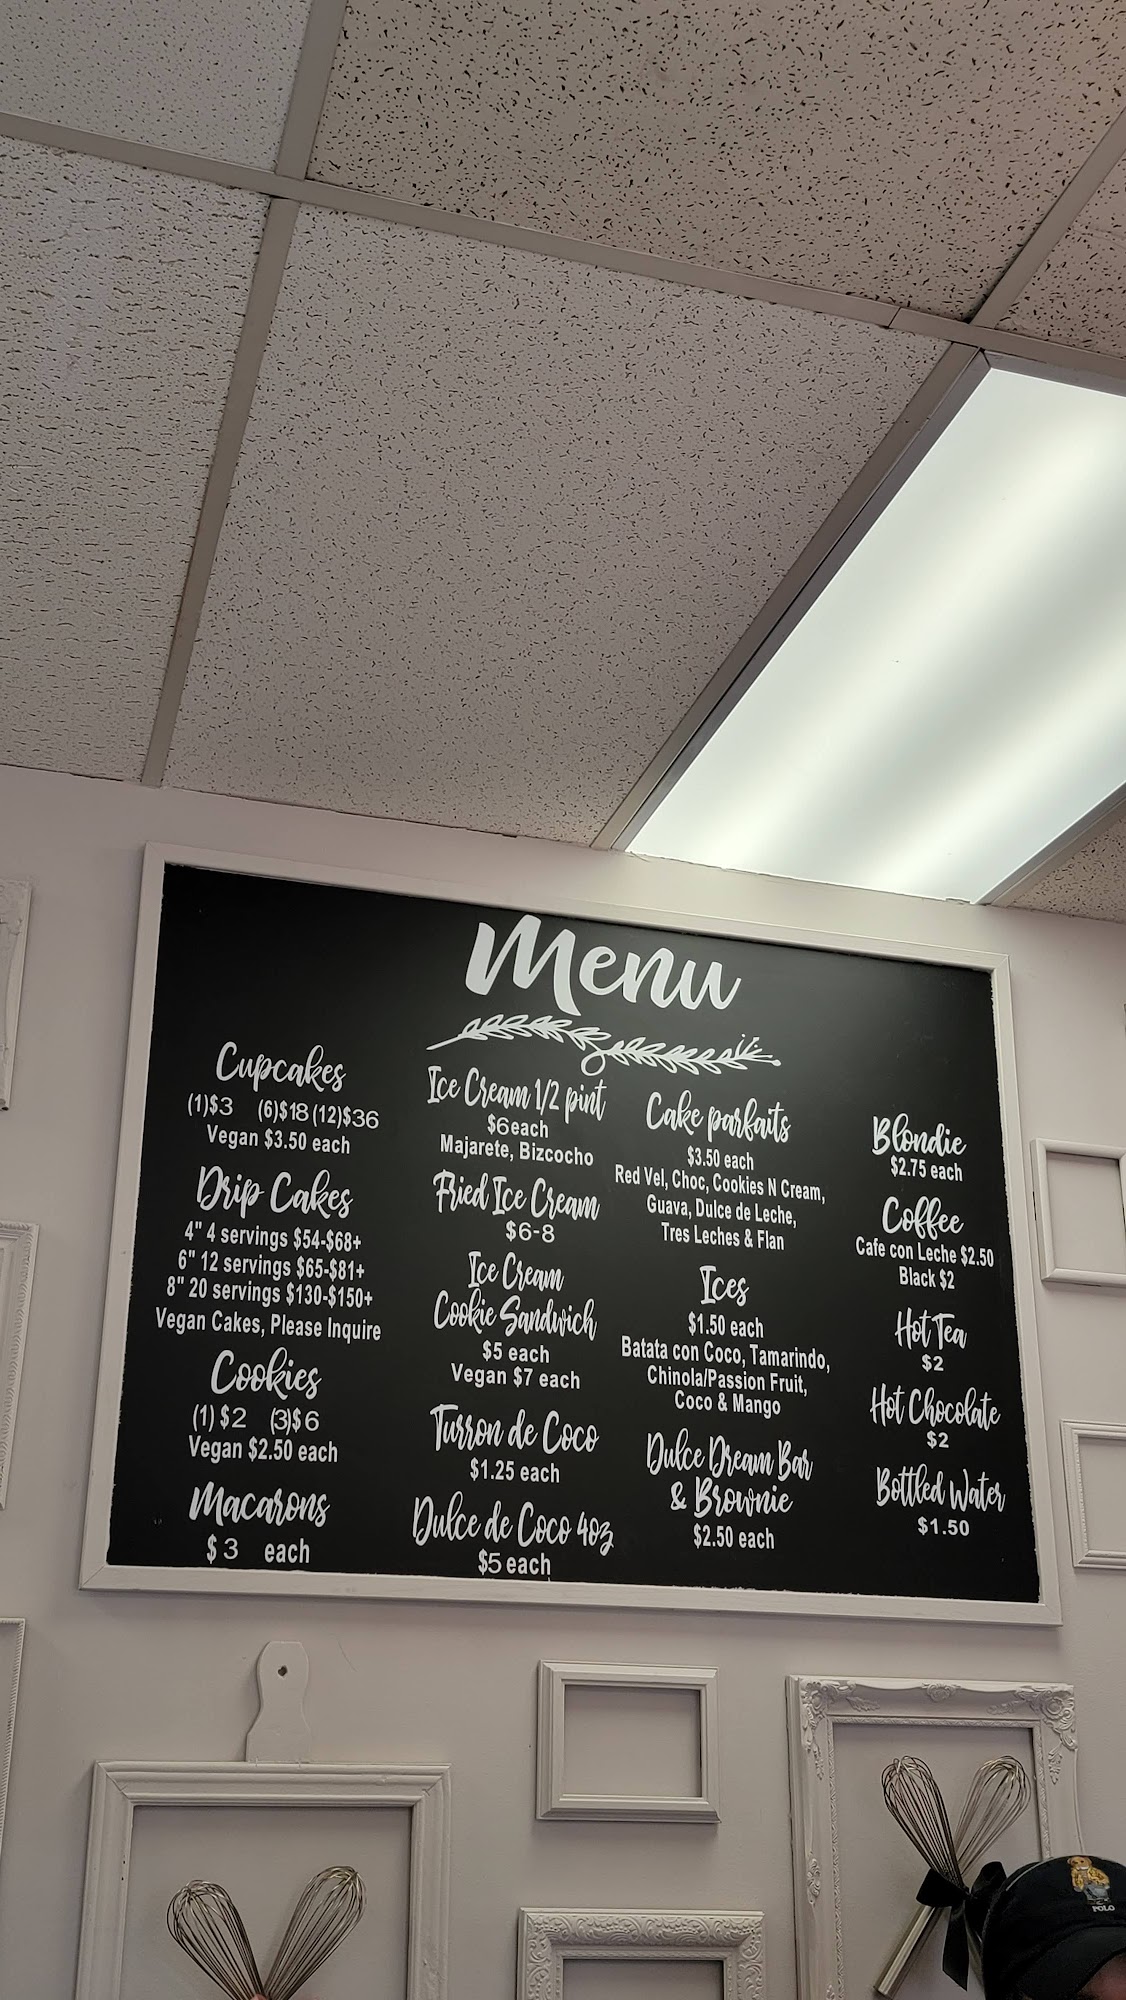 Menu
Cupcakes
(1)$3 (6)$18 (12)$36
Vegan $3.50 each
Drip Cakes
4" 4 servings $54-$68+
6" 12 servings $65-$81+
8" 20 servings $130-$150+
Vegan Cakes, Please Inquire
Cookies
(1) $2 (3)$6
Vegan $2.50 each
Macarons
$3 each
Ice Cream 1/2 pint
$6 each
Majarete, Bizcocho
Fried Ice Cream
$6-8
Ice Cream
Cookie Sandwich
$5 each
Vegan $7 each
Turron de Coco
$1.25 each
Dulce de Coco 4oz
$5 each
Cake parfaits
$3.50 each
Red Vel, Choc, Cookies N Cream,
Guava, Dulce de Leche,
Tres Leches & Flan
Ices
$1.50 each
Batata con Coco, Tamarindo,
Chinola/Passion Fruit,
Coco & Mango
Dulce Dream Bar
& Brownie
$2.50 each
Blondie
$2.75 each
Coffee
Cafe con Leche $2.50
Black $2
Hot Tea
$2
Hot Chocolate
$2
Bottled Water
$1.50
POLO